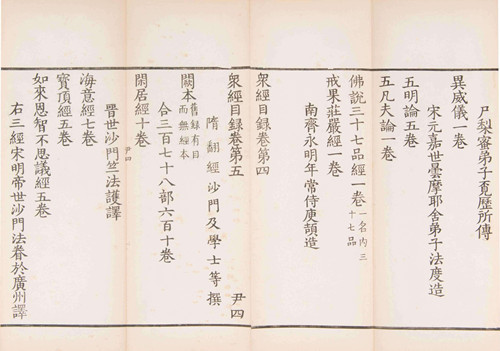 尸梨蜜弟子覓歷所傳
異威儀一卷
宋元嘉世曇摩耶舍弟子法度造
五明論五卷
五凡夫論一卷
佛說三十七品經一卷一名內三十七品
戒果莊嚴經一卷
南齊永明年常侍庾頡造
衆經目錄卷第四
衆經目錄卷第五 尹四
隋翻經沙門及學士等撰
闕本舊錄有目而無經本
合三百七十八部六百十卷
閑居經十卷
尹四
晉世沙門竺法護譯
海意經七卷
寶頂經五卷
如來恩智不思議經五卷
右三經宋明帝世沙門法眷於廣州譯